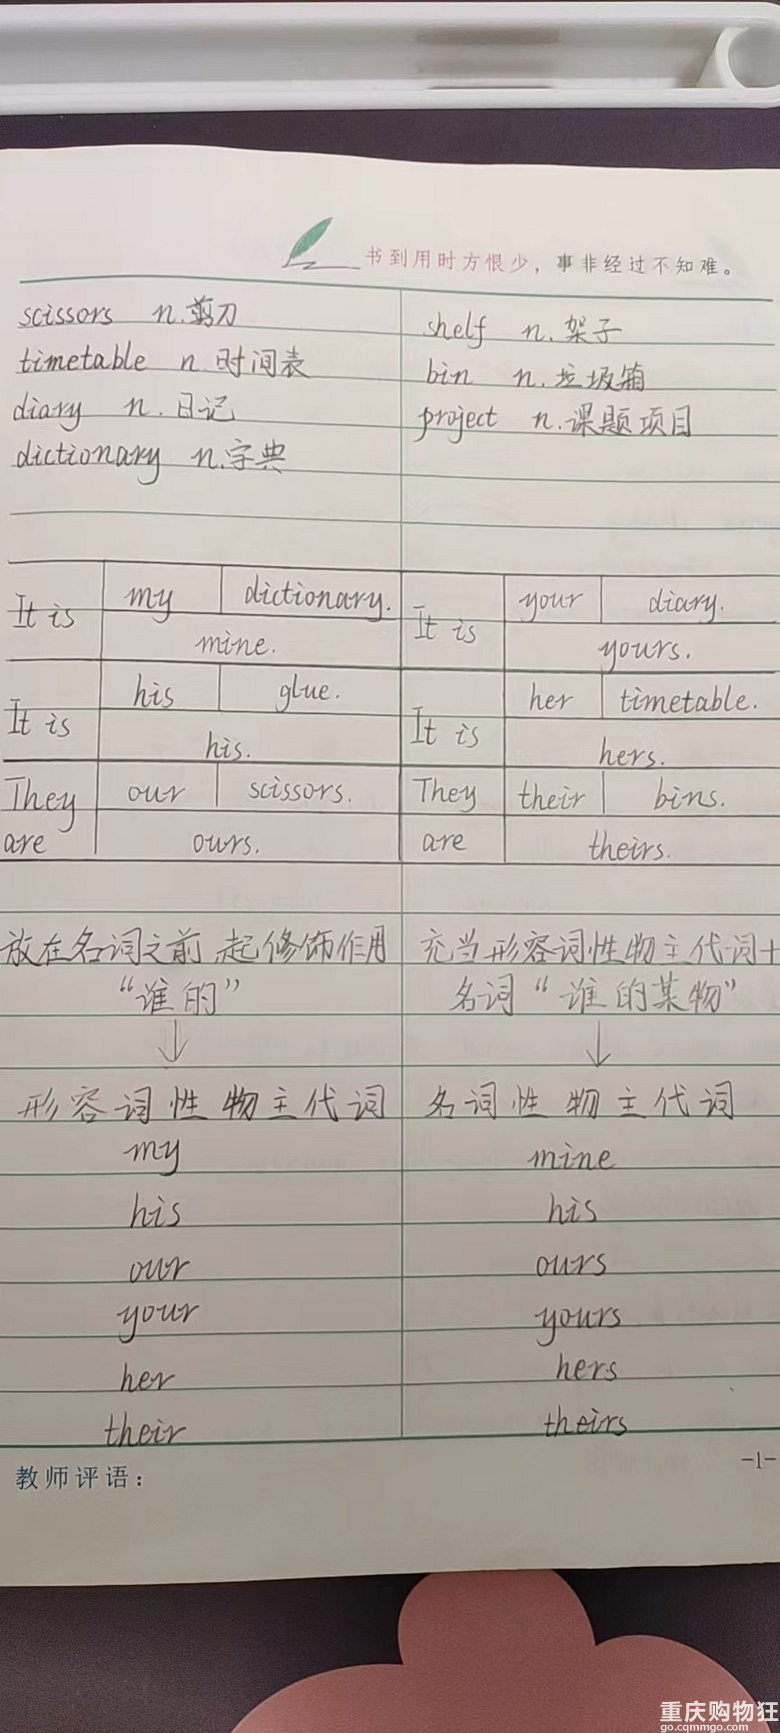 书到用时方恨少，事非经过不知难。
scissors n.剪刀
timetable n.时间表
diary n.日记
dictionary n.字典
shelf n.架子
bin n.垃圾箱
project n.课题项目
It is my dictionary.
mine.
It is your diary.
yours.
It is his glue.
his.
It is her timetable.
hers.
They are our scissors.
ours.
They are their bins.
theirs.
放在名词之前,起修饰作用
“谁的”
↓
形容词性物主代词
my
his
our
your
her
their
充当形容词性物主代词+
名词“谁的某物”
↓
名词性物主代词
mine
his
ours
yours
hers
theirs
教师评语：
-1-
重庆购物狂
go.cqmmgo.com